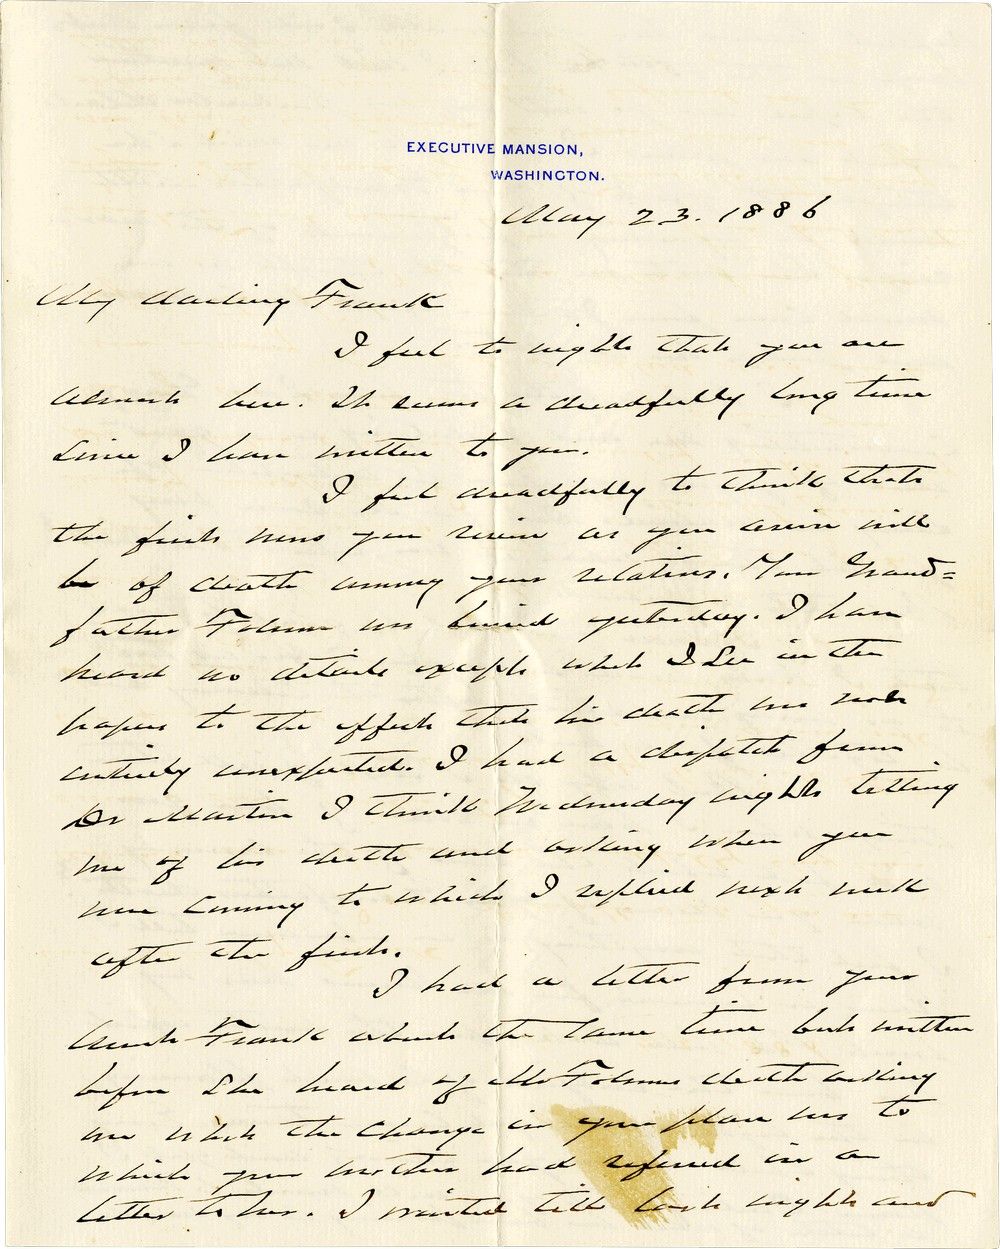 EXECUTIVE MANSION,
WASHINGTON.
May 23. 1886
My darling Frank
I feel to night that you are
almost here. It seems a dreadfully long time
since I have written to you.
I feel dreadfully to think that
the first news you receive as you arrive will
be of death among your relatives. Your Grand=
father Folsom was buried yesterday. I have
heard no details except what I see in the
papers to the effect that his death was not
entirely unexpected. I had a dispatch from
Dr Martin I think Wednesday night telling
me of his death and asking when you
were coming to which I replied next week
after the first.
I had a letter from your
Aunt Frank about the same time but written
before she heard of Mr Folsoms death asking
me what the change in your plan was to
which your mother had referred in a
letter to her. I waited till last night and